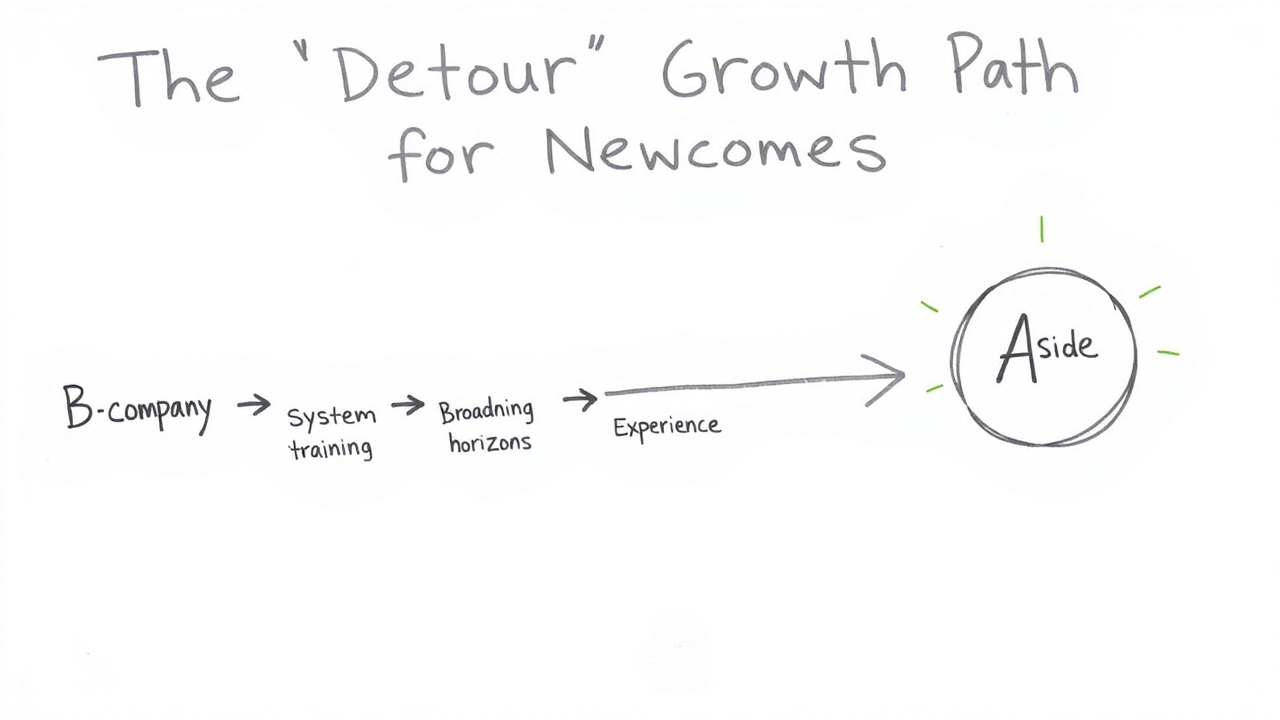 The "Detour" Growth Path
for Newcomes
B-company → System training → Broadning horizons → Experience
Aside